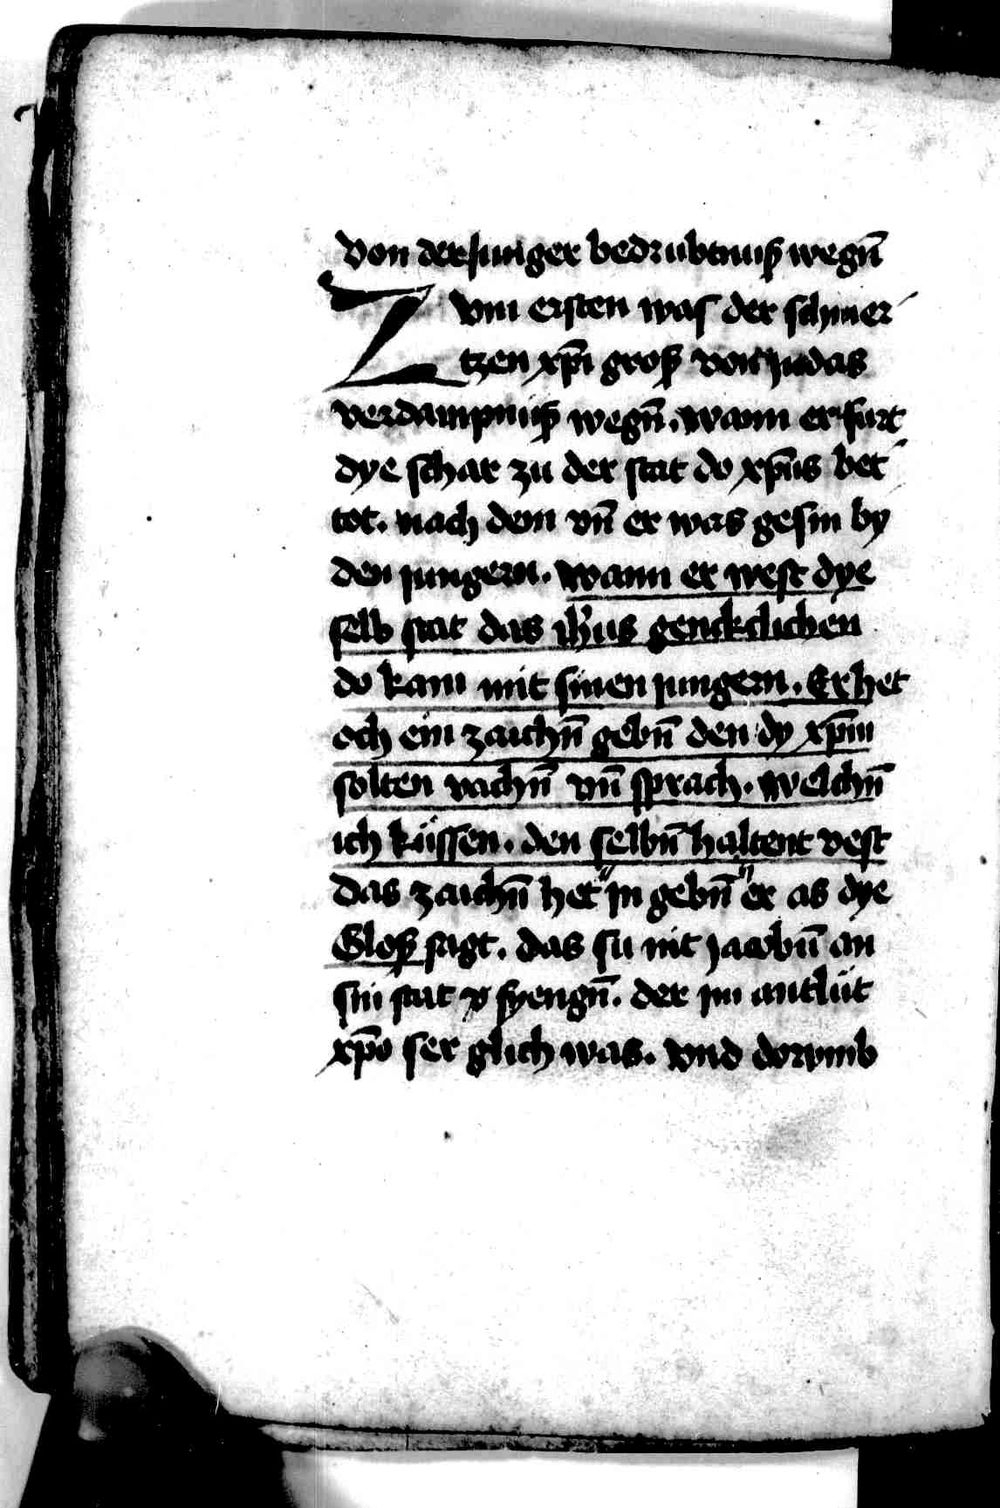 von der Junger bedrubtnuß wegn̄
Zvm ersten was der schmer
tzen xp̄i groß von Judas
verdampnuß wegn̄. wann er furt
dye schar zu der stat do xp̄us bet
tot. nach dem vn̄ er was gesin by
den jungern. wann er west dye
selb stat das ih̄us gencklichen
do kam mit sinen jungern. Er het
och ein zaichn̄ gebn̄ den dy xp̄m
solten vachn̄ vn̄ sprach. welchn̄
ich küssen. den selbn̄ haltent vest
das zaichn̄ het" jn gebn̄" er as dye
Gloß sagt. das su nit jacobū an
sin stat v̄ fyengn̄. der jm antlüt
xp̄o ser glich was. vnd dorvmb